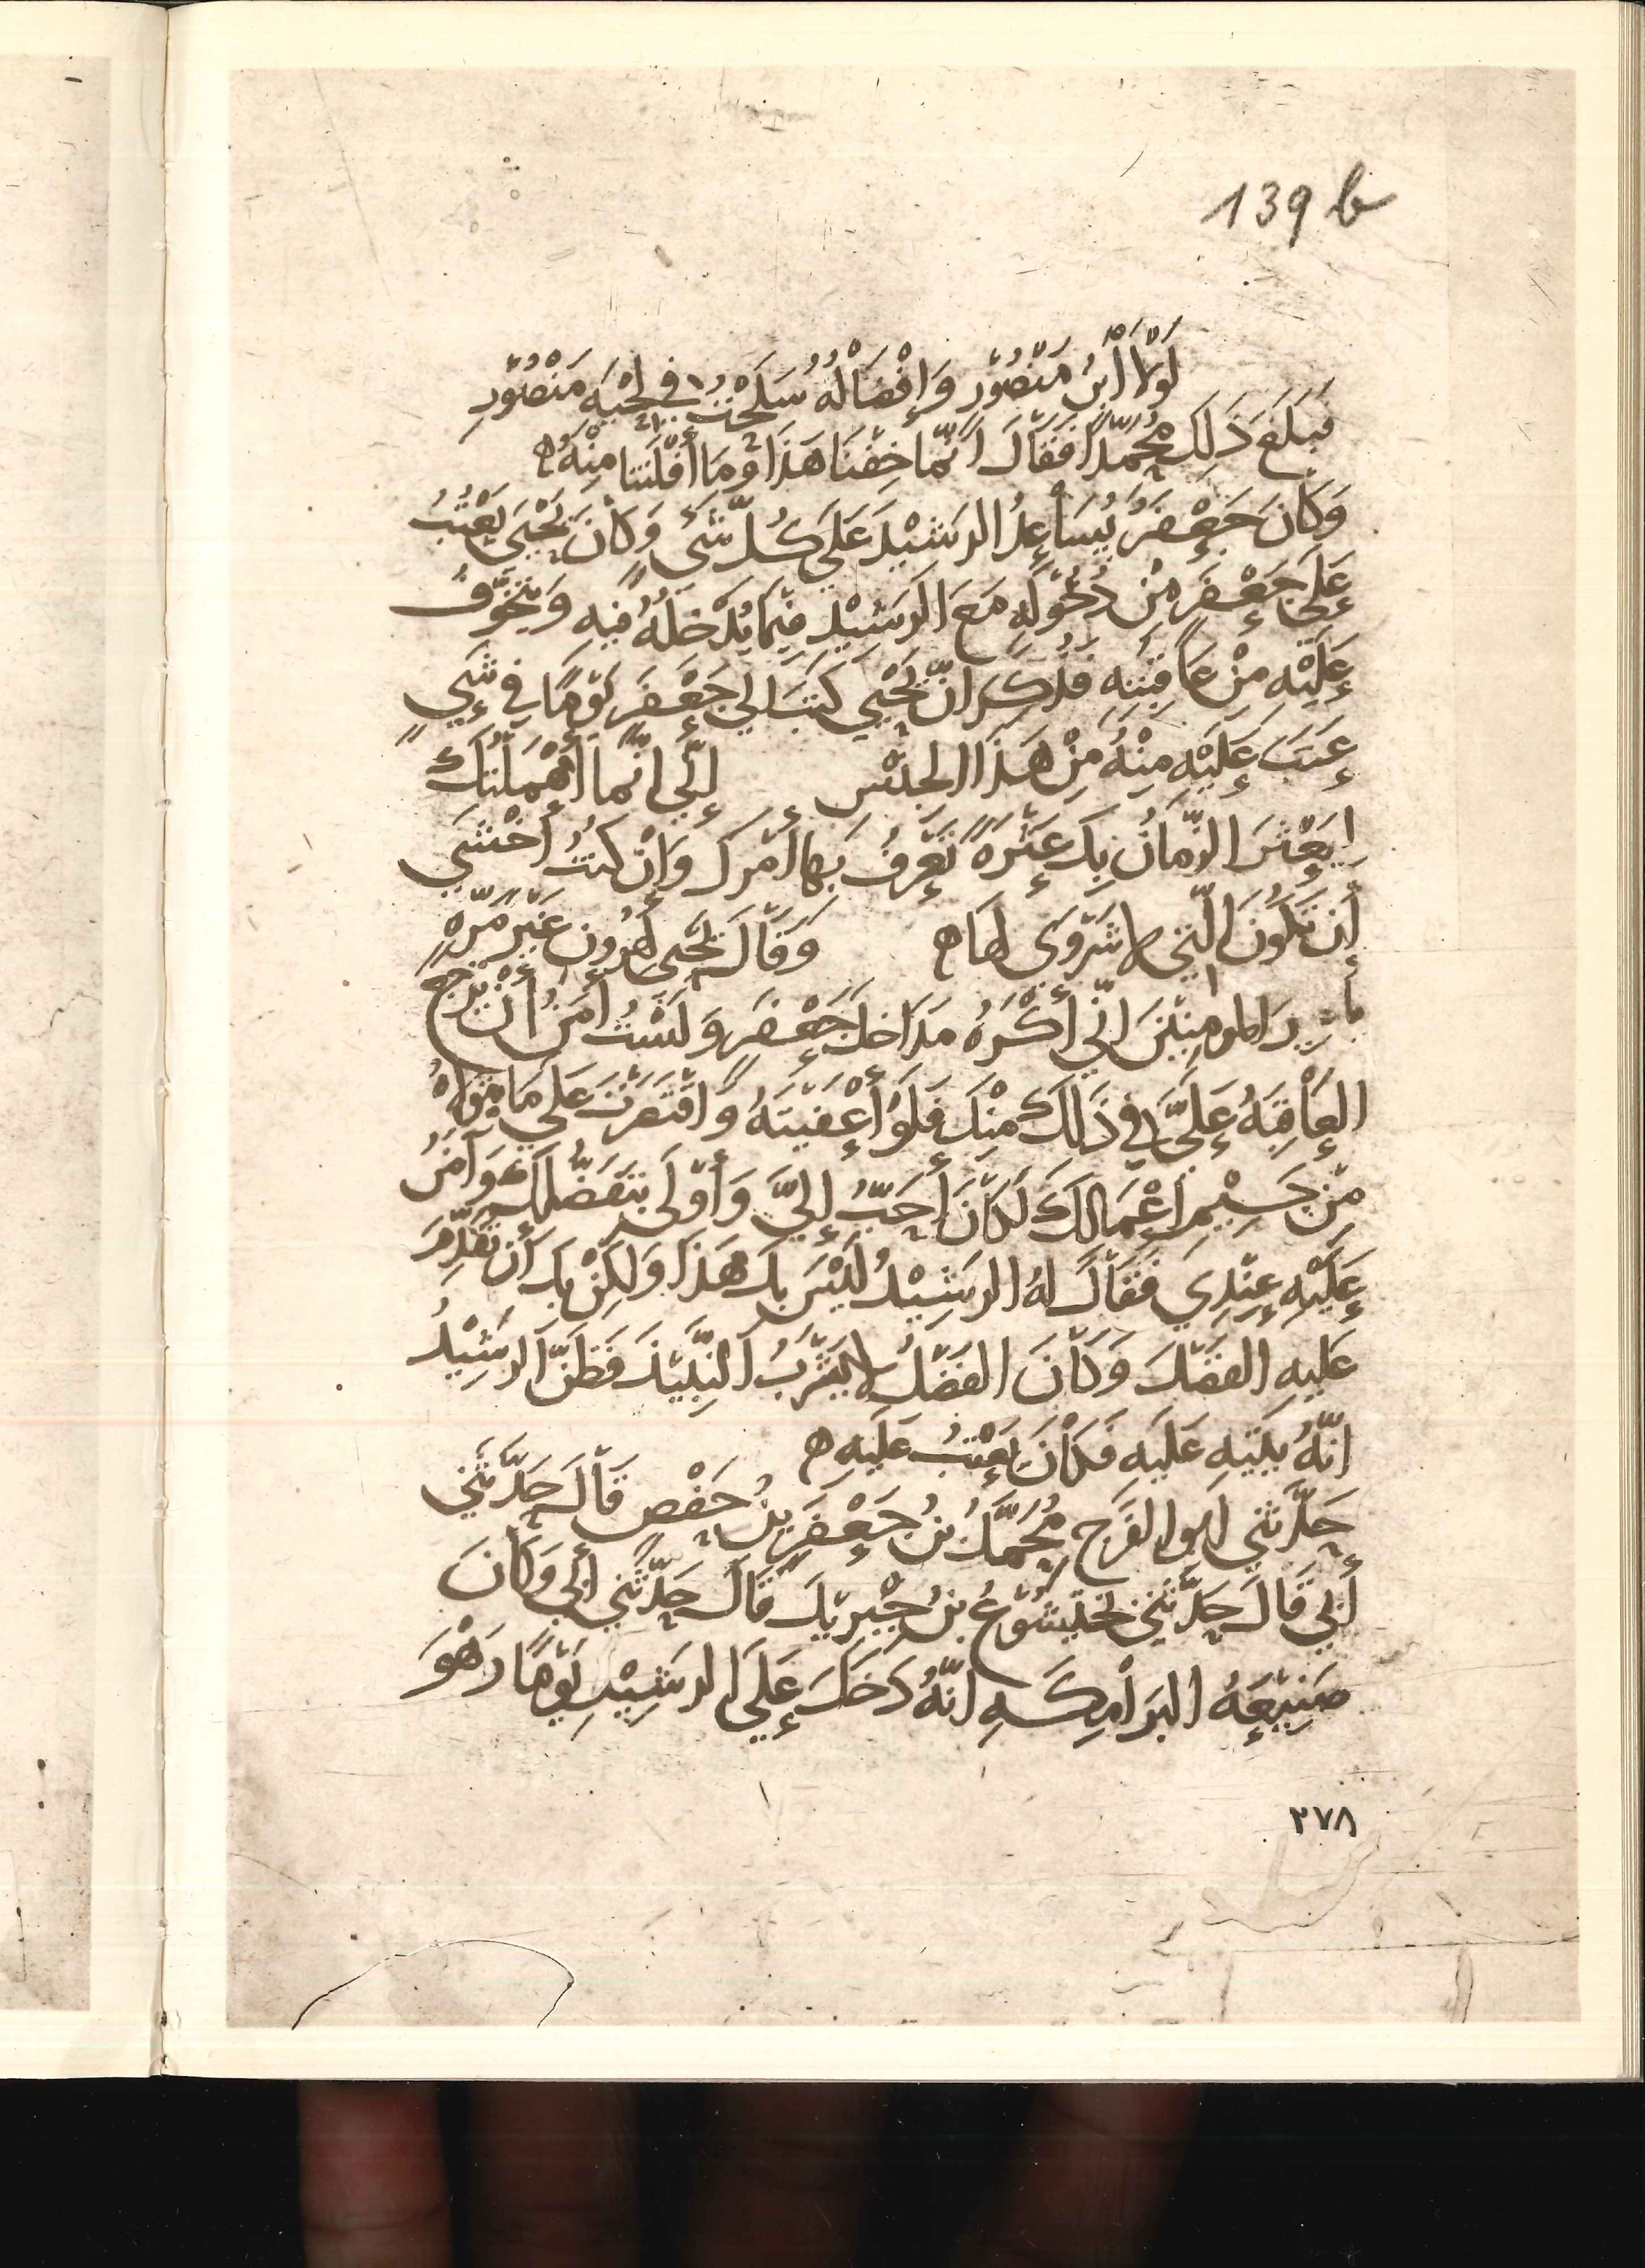 139 b
لَوْلَا ابْنُ مَنْصُوْرٍ وَإِفْضَالُهُ سَلَحْتُ فِي لِحْيَةِ مَنْصُوْرِ
فَبَلَغَ ذَلِكَ مُحَمَّدًا فَقَالَ انَّمَا خِفْنَا هَذَا وَمَا أَفْلَتنا مِنْهُ ه
وَكَانَ جَعْفَرُ يُسَاعِدُ الرَشيْدَ عَلَى كُلِّ شَىْءٍ وَكَانَ يَحْيَى يَعْتِبُ
عَلَى جَعْفَرَ مِنْ دُخُوْلِهِ مَعَ الرَشِيْدِ فِيْمَا يُدْخِلُهُ فيه وَيَتَخَوَّفُ
عَلَيْهِ مِنْ عَاقِبَتِهِ فَذُكِرَ انَّ يَحْيَى كَتَبَ الى جَعْفَرَ يَوْمًا فِي شَيٍ
عَتَبَ عَلَيْهِ مِنْهُ مِنْ هَذَا الجِنْسِ إِنّي انَّمَا أَهْمَلْتُكَ
لِيَعْثُرَ الزَّمَانُ بِكَ عَثْرَةً تَعْرِفُ بَهَا أَمْرَكَ وَإِنْ كنتُ أَخْشَي
أَن تَكُونَ الّتِي لا شَوَى لهَا ه وَقَالَ يَحْيَى لِهَرُونَ غَيْرَ مَرَّهٍ
يا مِيرَ المومِنِيْنَ انِّي أَكْرَهُ مَدَاخِلَ جَعْفَرَ وَلَسْتُ أَمَنُ أَنْ تَرْجِعَ
العَاقِبَهُ عَلَيَّ فِي ذَلِكَ مِنْكَ فَلَوْ أَعْفَيْتَهُ وَاقْتَصَرْتَ عَلَى مَا يَتَولاهُ
مِنْ جَسِيْمِ أَعْمَالِكَ لَكَانَ أَحَبَّ إِلَيَّ وَأَوْلَى بِتَفَضُّلِكَ وَآمَنُ
عَلَيْهِ عِنْدِي فَقَالَ لهُ الرَشِيْدُ لَيْسَ بِكَ هَذَا وَلَكِنْ بِكَ أَن تُقَدِّمَ
عَليهِ الفَضْلَ وَكَانَ الفَضْلُ لا يَشْرَبُ النّبِيْذَ فَظَنَّ الرَشِيْدُ
انَّهُ يَتِيْهِ عَلَيهِ فَكَانَ يَعْتِبُ عَلَيهِ ه
حَدَّثَنِي ابُو الفَرَجِ مُحَمَّدُ بْنُ جَعْفَرِ بْنِ حَفْصٍ قَالَ حَدَّثَنِي
أَبِي قَالَ حَدَّثَنِي بَخْتَيَشُوْعُ بنُ جِبْرِيْلَ قَالَ حَدَّثَنِي أَبِي وَكَانَ
صَنِيْعَهُ البَرامِكَــهِ انَّهُ دَخَلَ عَلَى الرَشِيْدِ يَوْمًا وَهْوَ
٢٧٨